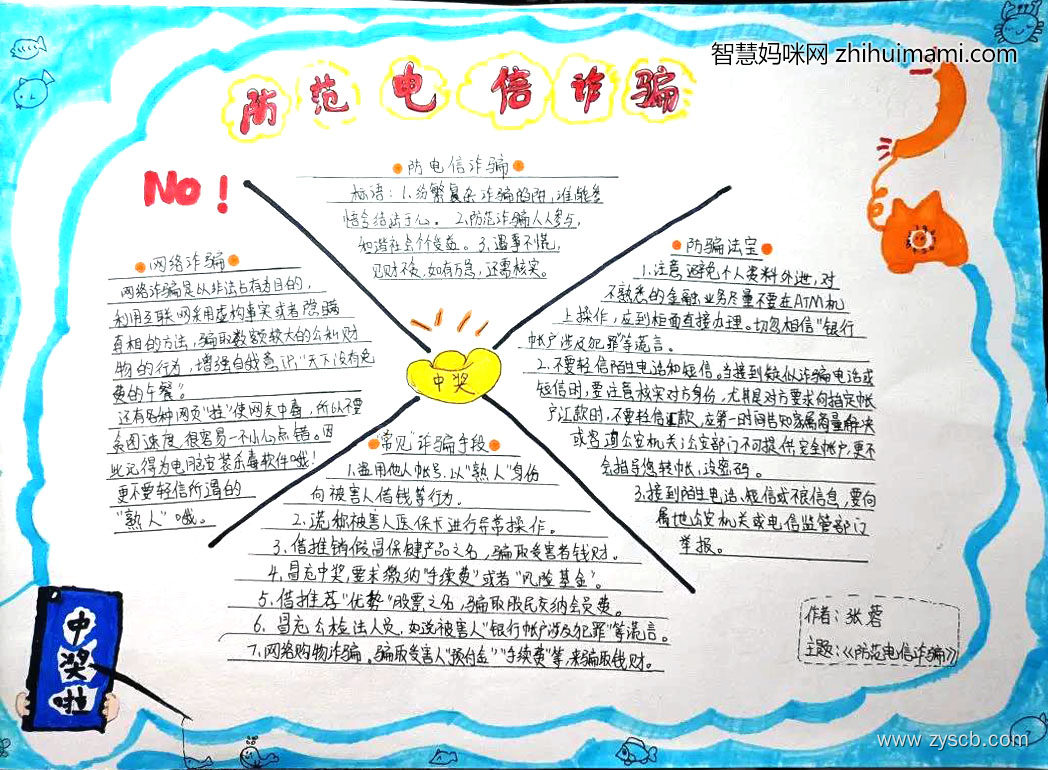 智慧妈咪网 zhihuimami.com
防范电信诈骗
No!
防电信诈骗
标语：1、纷繁复杂诈骗陷阱，谁能参
悟会结法于心。2、防范诈骗人人参与，
和谐社会个个受益。3、遇事不慌，
见财不贪，如有万急，还需核实。
网络诈骗
网络诈骗是以非法占有为目的，
利用互联网采用虚构事实或者隐瞒
真相的方法，骗取数额较大的公私财
物的行为，增强自我意识，“天下没有免
费的午餐”
还有各种网页“挂”使网友中毒，所以不要
贪图速度，很容易一不小心点错。因
此记得为电脑安装杀毒软件哦！
更不要轻信所谓的
“熟人”哦。
中奖
防骗法宝
1.注意避免个人资料外泄，对
不熟悉的金融业务尽量不要在ATM机
上操作，应到柜面直接办理。切勿相信“银行
帐户涉及犯罪”等谎言。
2.不要轻信陌生电话和短信。当接到疑似诈骗电话或
短信时，要注意核实对方身份，尤其是对方要求向指定帐
户汇款时，不要轻信汇款，应第一时间告知家属商量解决
或咨询公安机关；公安部门不可提供安全帐户，更不
会指导您转帐、设密码。
3.接到陌生电话、短信或不良信息，要向
属地公安机关或电信监管部门
举报。
常见“诈骗手段”
1.盗用他人帐号，以“熟人”身份
向被害人借钱等行为。
2.谎称被害人医保卡进行异常操作。
3.借推销假冒保健产品之名，骗取受害者钱财。
4.冒充中奖，要求缴纳“手续费”或者“风险基金”。
5.借推荐“优势”股票之名，骗取股民交纳会员费。
6.冒充公检法人员，如说被害人“银行帐户涉及犯罪”等谎言。
7.网络购物诈骗，骗取受害人“预付金”“手续费”等，来骗取钱财。
中奖啦
作者：张蓉
主题：《防范电信诈骗》
www.zyscb.com